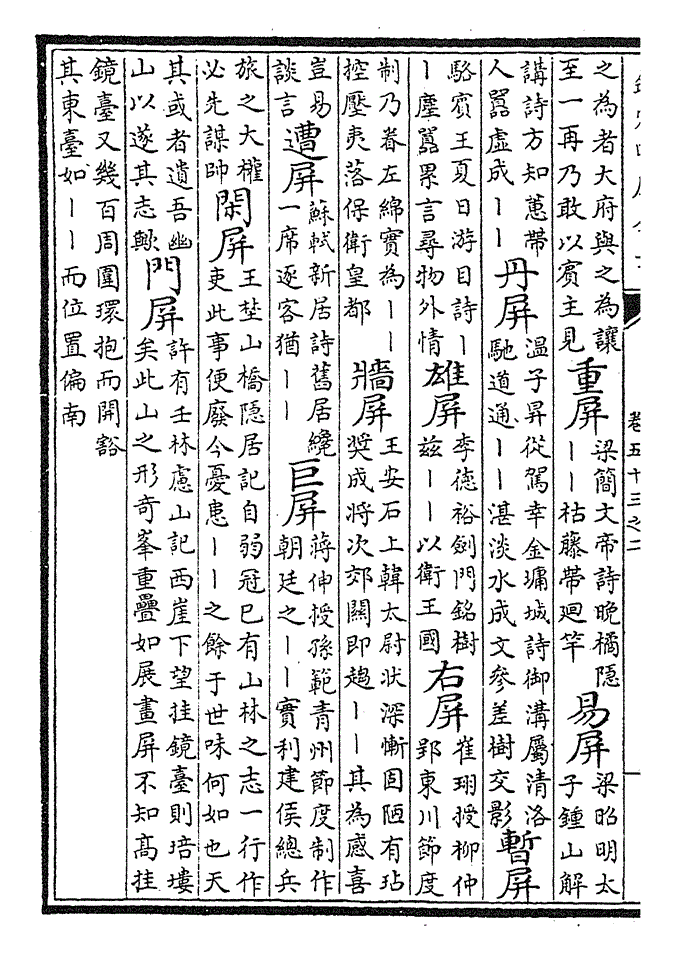 卷五十三之二
之為者大府與之為讓
至一再乃敢以賓主見
重屏
梁簡文帝詩晚橘隱
丨丨枯藤帶迴竿
易屏
梁昭明太
子鍾山解
講詩方知蕙帶
人嚚虛成丨丨
丹屏
溫子昇從駕幸金墉城詩御溝屬清洛
馳道通丨丨湛淡水成文參差樹交影
暫屏
駱賓王夏日游目詩丨
丨塵嚚累言尋物外情
雄屏
李德裕劍門銘樹
兹丨丨以衛王國
右屏
崔珝授柳仲
郢東川節度
制乃眷左綿實為丨丨
控壓夷落保衛皇都
牆屏
王安石上韓太尉狀深慚固陋有玷
奬成將次郊關即趨丨丨其為感喜
豈易
談言
遭屏
蘇軾新居詩舊居繞
一席逐客猶丨丨
巨屏
蔣伸授孫範青州節度制作
朝廷之丨丨實利建侯總兵
旅之大權
必先謀帥
閑屏
王埜山橋隱居記自弱冠已有山林之志一行作
吏此事便廢今憂患丨丨之餘于世味何如也天
其或者遺吾幽
山以遂其志歟
門屏
許有壬林慮山記西崖下望挂鏡臺則培塿
矣此山之形奇峯重疊如展畫屏不知髙挂
鏡臺又幾百周圍環抱而開豁
其東臺如丨丨而位置偏南